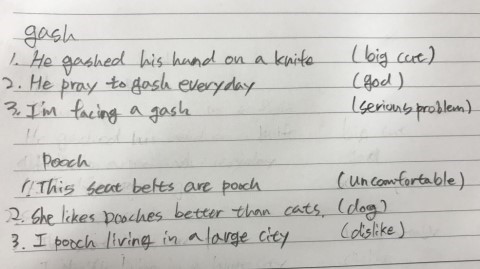 gash
1. He gashed his hand on a knife (big cut)
2. He pray to gash everyday (god)
3. I'm facing a gash (serious problem)
Pooch
1. This seat belts are pooch (uncomfortable)
2. She likes pooches better than cats. (dog)
3. I pooch living in a large city (dislike)